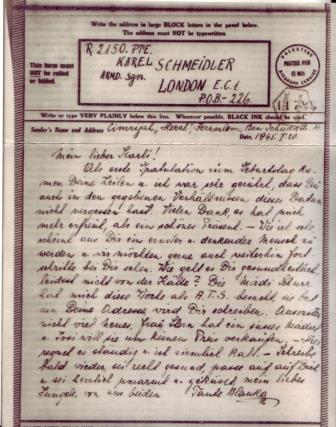 Write the address in large BLOCK letters in the panel below.
The address must NOT be typewritten.
This form must
NOT be rolled
or folded.
R 2150. PTE.
KAREL SCHMEIDLER
ARMD. Sqn.
LONDON E.C.1
P.O.B.-226.
PALESTINE
POSTAGE PAID
15 MILS
AIRGRAPH SERVICE
Write or type VERY PLAINLY below this line. Wherever possible, BLACK INK should be used.
Sender's Name and Address
Date. 1945. I 20.
Mein lieber Karli!
Als erste Gratulation zum Geburtstag ka-
men Deine Zeilen u. ich war sehr gerührt, dass Du
auch in den gegebenen Verhältnissen dieses Datum
nicht vergessen hast. Vielen Dank, es hat mich
mehr erfreut, als ein schönes Präsent. – Wie ich sehe
scheint aus Dir ein ernster u. denkender Mensch zu
werden u. wir möchten gerne auch weiterhin Fort-
schritte bei Dir sehen. Wie geht es Dir gesundheitlich
leidest nicht von der Kälte? Die Mädi
hat mich diese Woche als A.T.S. besucht, sie bat
um Deine Adresse, wird Dir schreiben. Ansonsten
nicht viel Neues, Frau Horn hat ein süsses
u. will sie um keinen Preis verkaufen. – Hier
regnet es ständig u. ist ziemlich kalt. – Schreibe
bald wieder, sei recht gesund, passe auf auf Dich
u. sei herzlich umarmt u. geküsst, mein lieber
Junge, von uns beiden Tante Blanka